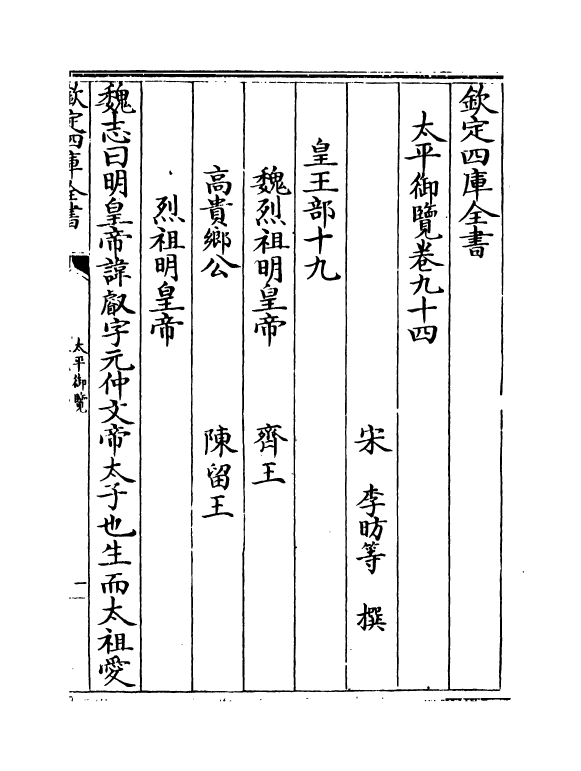 欽定四庫全書
太平御覽卷九十四
宋　李昉等　撰
皇王部十九
魏烈祖明皇帝　齊王
高貴鄉公　陳留王
烈祖明皇帝
魏志曰明皇帝諱叡字元仲文帝太子也生而太祖愛
欽定四庫全書
太平御覽
一